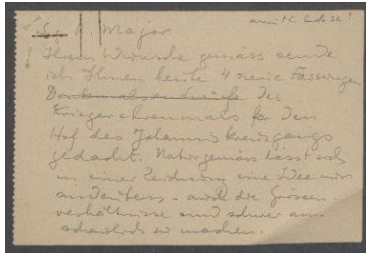 S. k. Major
Ihrem Wunsche gemäss sende
ich Ihnen heute 4 neue Fassungen
des
Kriegerehrenmals für den
Hof des Johanniskreuzgangs
gedacht. Naturgemäss lässt sich
in einer Zeichnung eine Idee nur
andeuten - auch die Grössen-
verhältnisse sind schwer an-
schaulich zu machen.